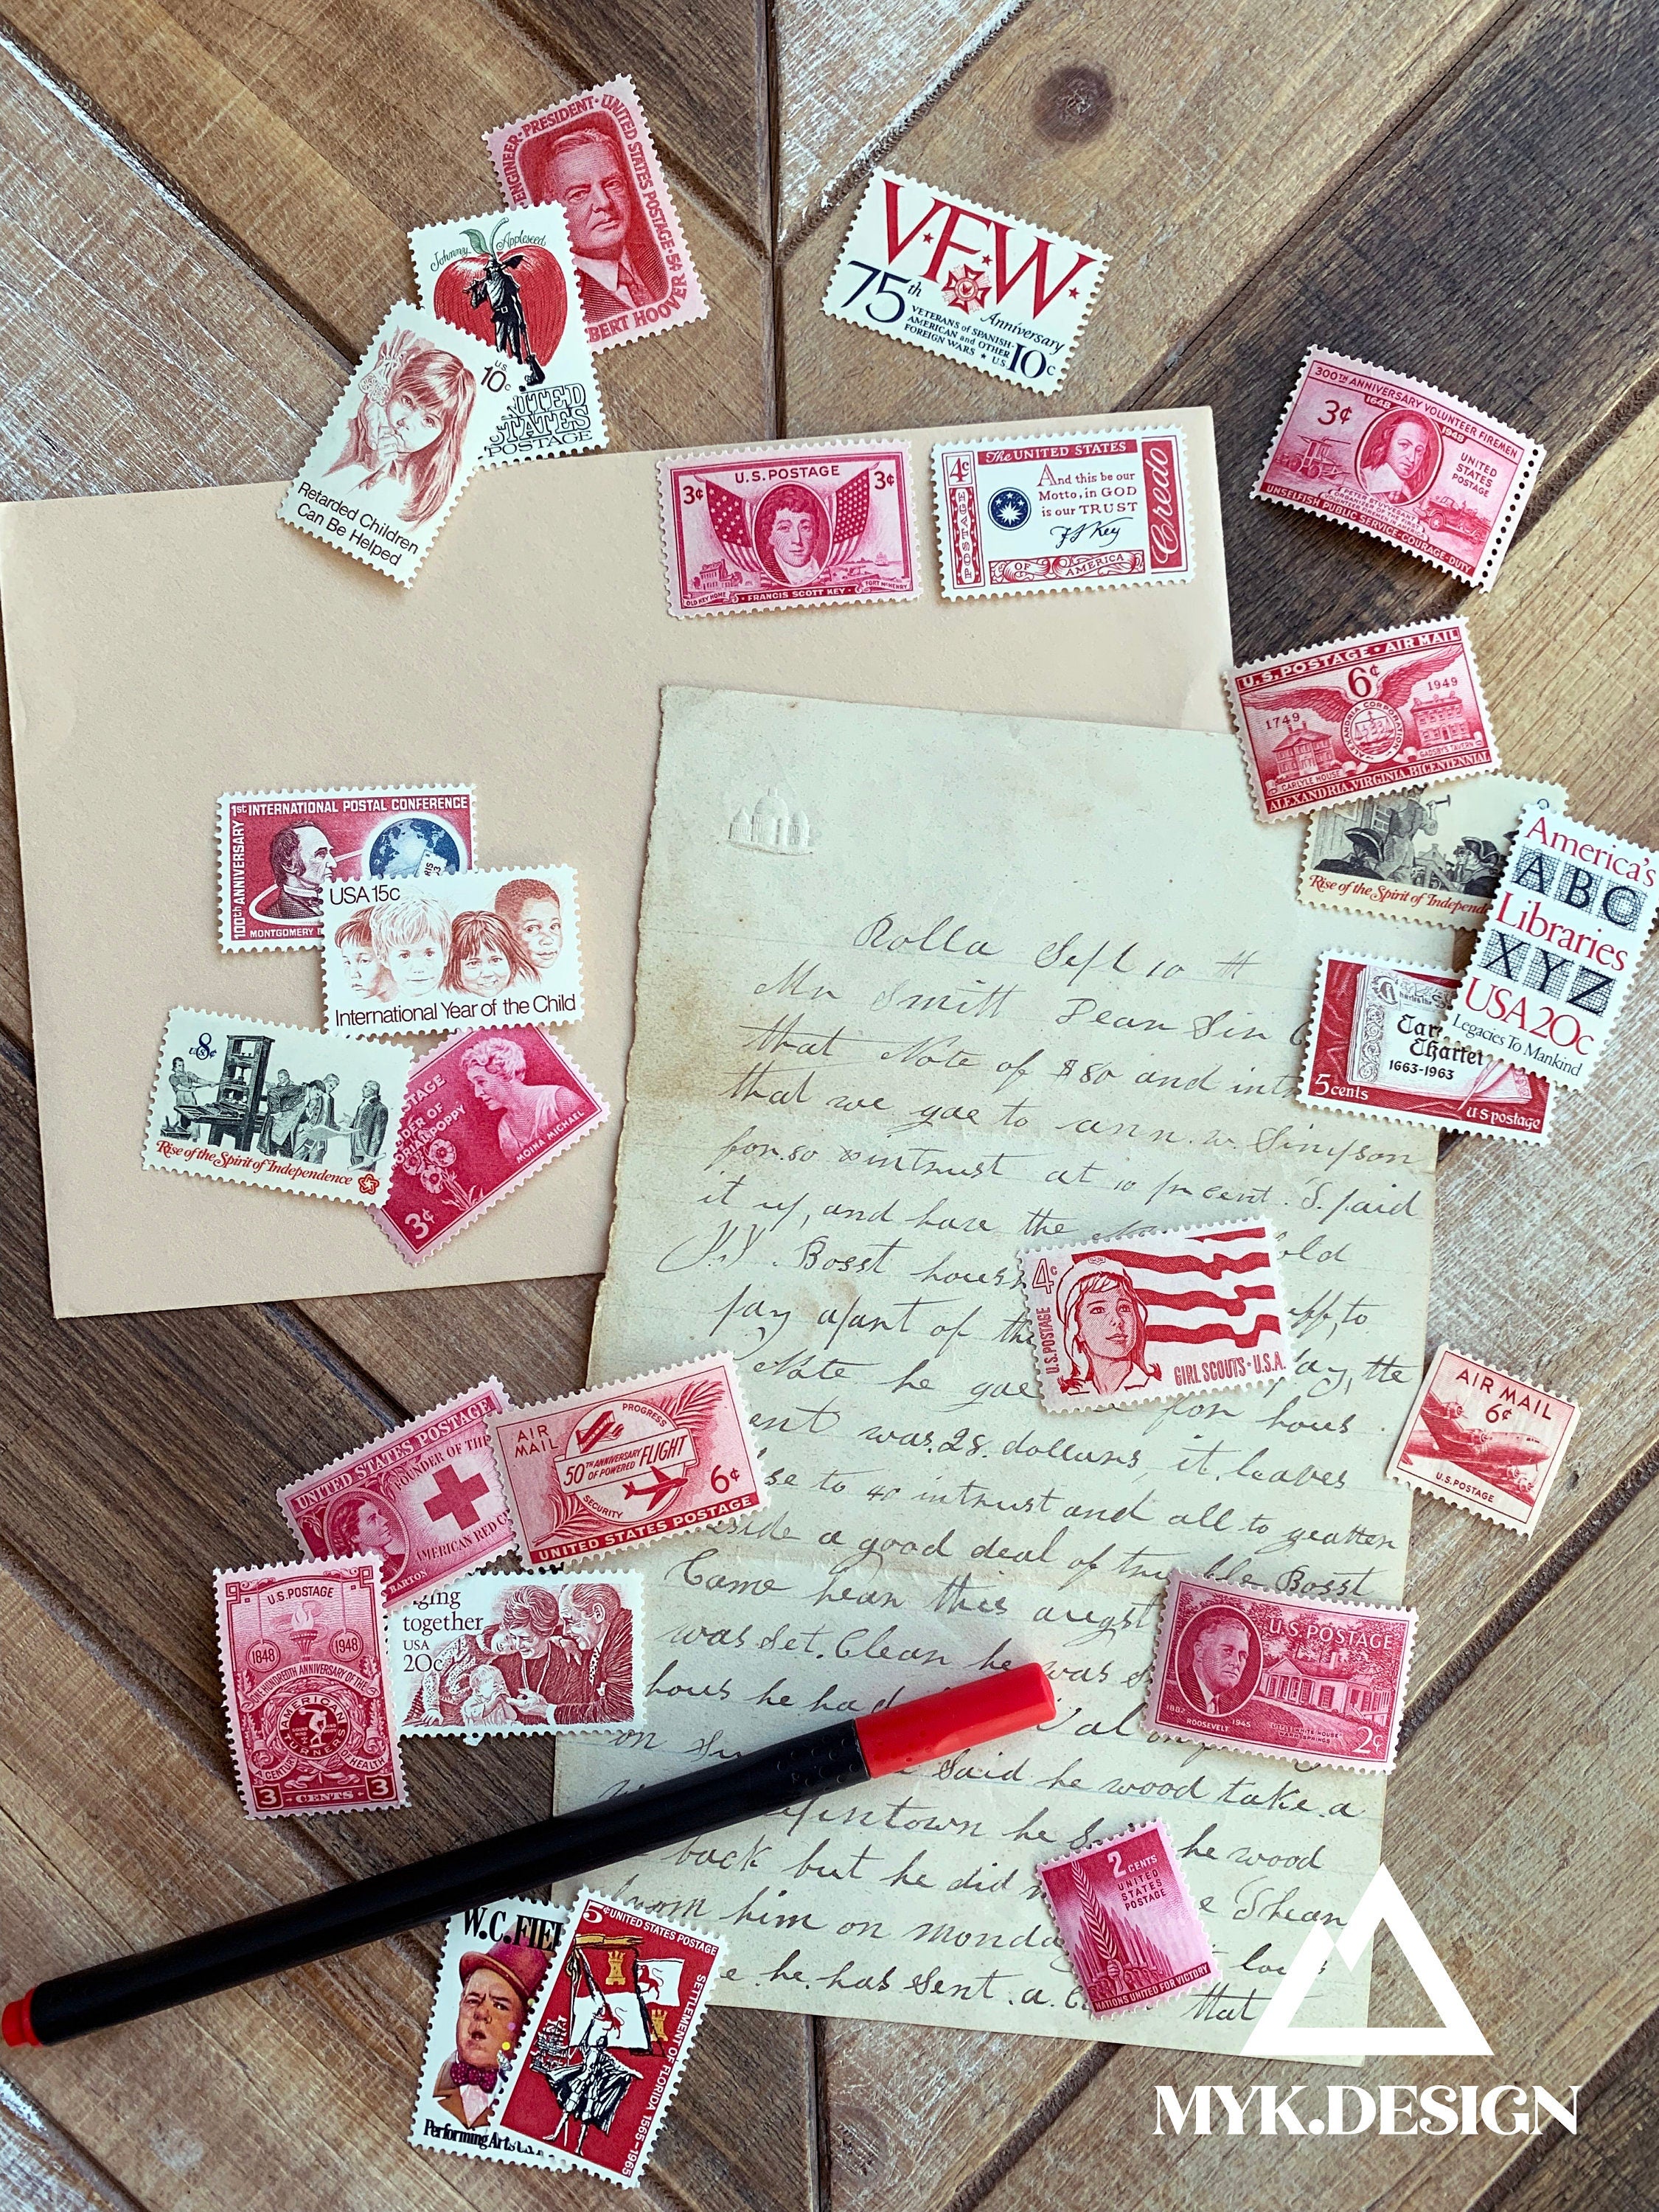 ENGINEER · PRESIDENT · UNITED STATES POSTAGE · 5¢
BERT HOOVER
Johnny Appleseed
U.S. 10c
UNITED
STATES
POSTAGE
Retarded Children
Can Be Helped
V.F.W.
75th Anniversary
VETERANS of SPANISH-
AMERICAN and OTHER
FOREIGN WARS ★ U.S. 10c
U.S. POSTAGE
3¢ 3¢
OLD KEY HOME · FRANCIS SCOTT KEY · FORT McHENRY
The UNITED STATES
4c POSTAGE
And this be our
Motto, in GOD
is our TRUST
FS Key
Credo
OF AMERICA
300TH ANNIVERSARY VOLUNTEER FIREMEN
3¢ 1648 1948
UNITED
STATES
POSTAGE
UNSELFISH PUBLIC SERVICE · COURAGE · DUTY
U.S. POSTAGE · AIR MAIL
6¢
1749 1949
ALEXANDRIA CORPORATION
CARLYLE HOUSE GADSBYS TAVERN
ALEXANDRIA, VIRGINIA, BICENTENNIAL
Rise of the Spirit of Independ
America's
ABC
Libraries
XYZ
USA 20c
Legacies To Mankind
Charter
1663-1963
5 cents
U S postage
1st INTERNATIONAL POSTAL CONFERENCE
100th ANNIVERSARY
MONTGOMERY
USA 15c
International Year of the Child
8
US¢
Rise of the Spirit of Independence
STAGE
DER OF
ORIAL POPPY
MOINA MICHAEL
3¢
Rolla Sept 10 th
Mr Smitt Dear Sir
that Note of $80 and int
that we gae to ann. w. Simpson
for 80 intrust at 10 pr cent. I paid
it up, and have the old
Bosst hous
pay apart of the to
Note he gae pay, the
for hous
ent was 28. dollars, it leaves
se to 40 intrust and all to geatter
side a good deal of trubble Bosst
Came hear this augst
was set. Clean he was
hous he had
on
Said he wood take a
intown he he wood
back but he did
from him on monda I hear
e he has sent a
that
4c
U.S. POSTAGE
GIRL SCOUTS · U.S.A.
AIR MAIL
6¢
U.S. POSTAGE
UNITED STATES POSTAGE
FOUNDER OF THE
AMERICAN RED C
BARTON
AIR
MAIL
PROGRESS
50TH ANNIVERSARY
OF POWERED FLIGHT
SECURITY
6¢
UNITED STATES POSTAGE
U.S. POSTAGE
1848 1948
ONE HUNDREDTH ANNIVERSARY OF THE
AMERICAN
TURNERS
A CENTURY OF HEALTH
3 · CENTS · 3
ging
together
USA
20c
U.S. POSTAGE
1882 ROOSEVELT 1945
LITTLE WHITE HOUSE
WARM SPRINGS
2¢
2 CENTS
UNITED
STATES
POSTAGE
NATIONS UNITED FOR VICTORY
W.C. FIEL
Performing Arts
5¢ UNITED STATES POSTAGE
SETTLEMENT OF FLORIDA 1565-1965
MYK.DESIGN